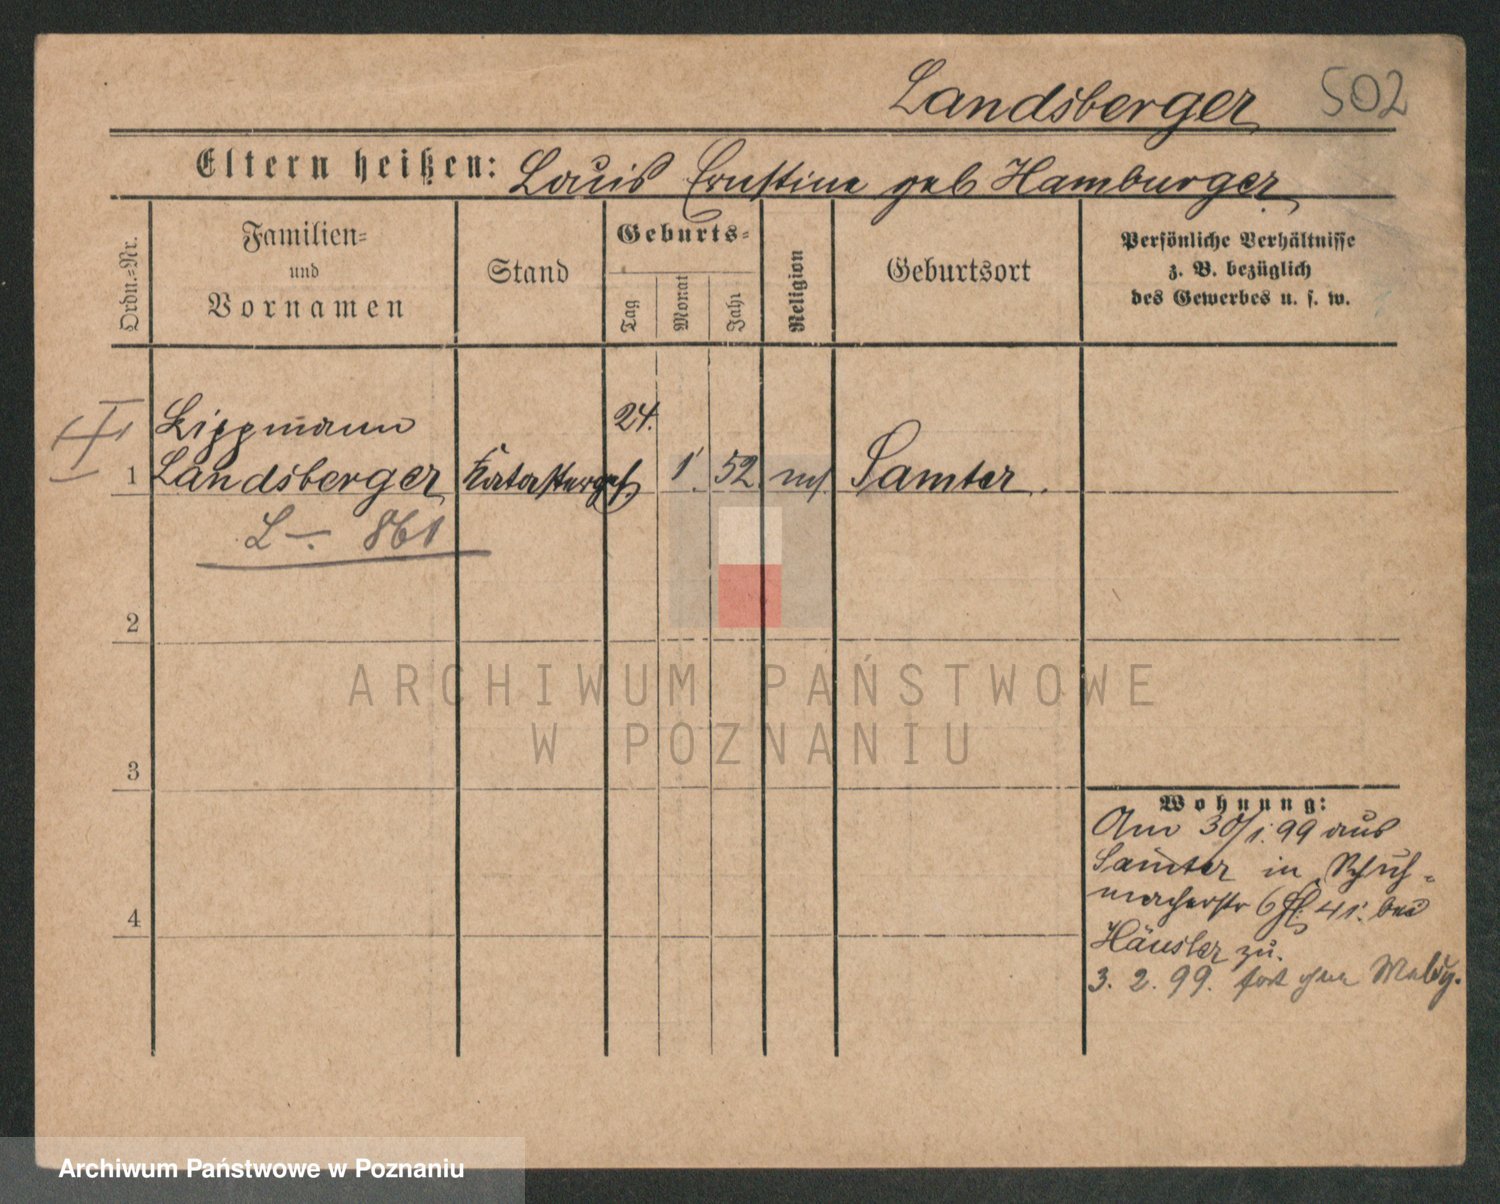 Landsberger 502
Eltern heißen: Louis Ernstine geb Hamburger
Ordn.=Nr.
Familien=
und
Vornamen
Stand
Geburts=
Tag
Monat
Jahr
Religion
Geburtsort
Persönliche Verhältnisse
z. B. bezüglich
des Gewerbes u. s. w.
Lippmann 24.
1 Landsberger 1. 52 Samter.
L—. 861
2
ARCHIWUM PAŃSTWOWE
W POZNANIU
3
Wohnung:
Am 30/1. 99 aus
Samter in Schuh-
macherstr 6 41. bei
4
Häusler zu.
3. 2. 99. fort ohne Meldg.
Archiwum Państwowe w Poznaniu